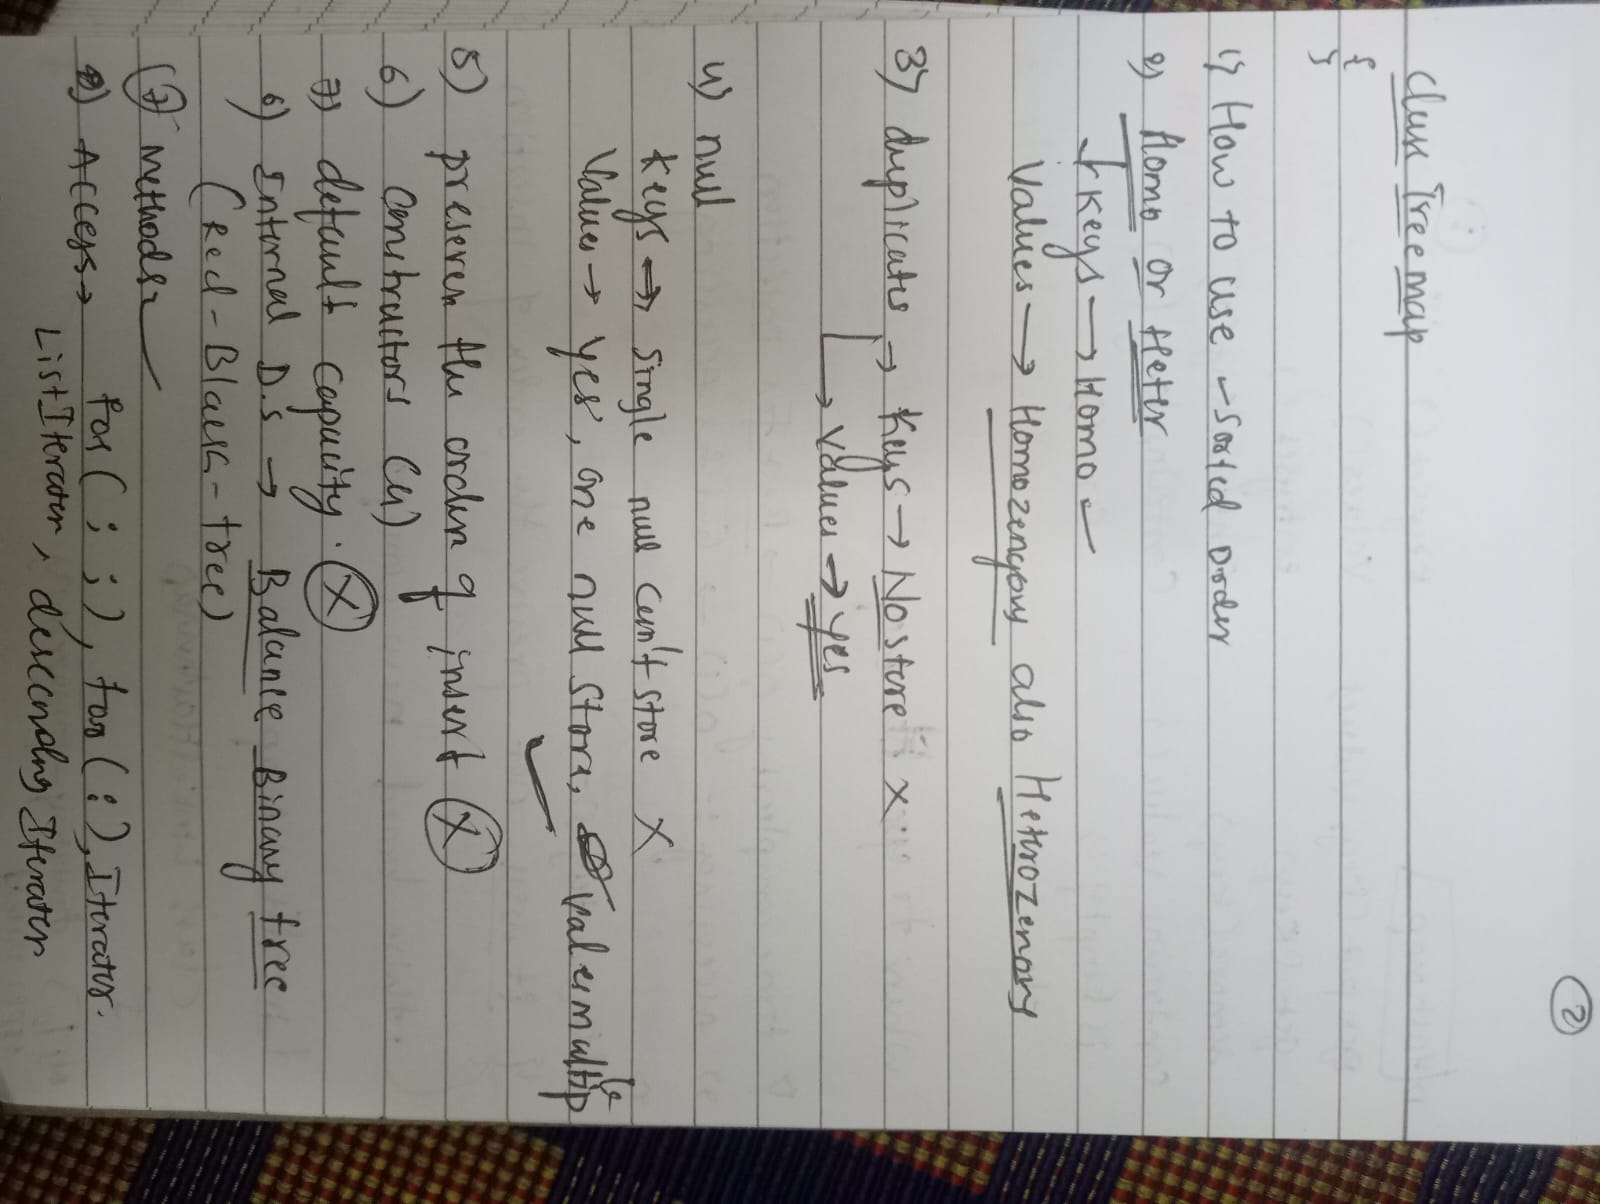 ②
Class Treemap
{
}
1) How to use - Sorted Order
2) Homo or Heter
Keys → Homo ✓
Values → Homozengous also Hetrozenous
3) duplicates → Keys → No store ×
→ Values → Yes
4) null
Keys → Single null can't store ×
Values → Yes, one null store, value multiple
5) preserve the order of insert ⓧ
6) Constructors (4)
7) default capacity. ⓧ
6) Internal D.S → Balance Binary tree
(Red-Black-tree)
⑦ Methods ✓
8) Access → for( ; ; ), for( : ), Iterator.
ListIterator, descending Iterator